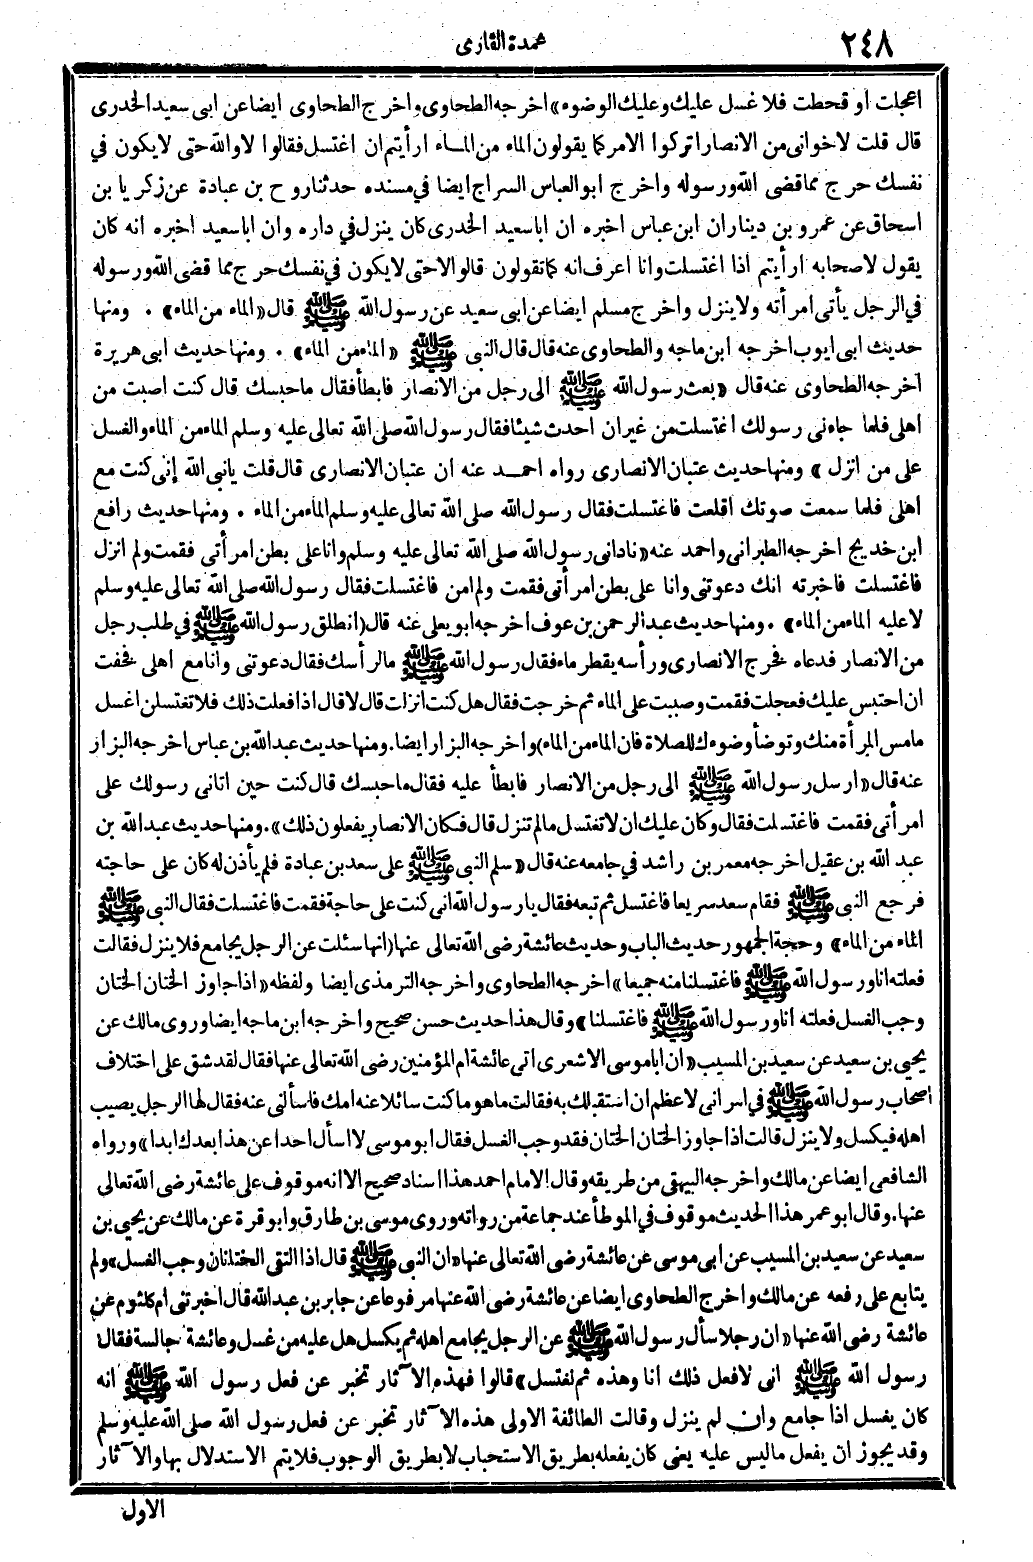 ٢٤٨
عمدة القارى
اعجلت او قحطت فلا غسل عليك وعليك الوضوء» اخرجه الطحاوى واخرج الطحاوى ايضا عن ابى سعيد الخدرى
قال قلت لاخوانى من الانصار اتركوا الامر كما يقولون الماء من المــاء ارأيتم ان اغتسل فقالوا لا والله حتى لا يكون في
نفسك حرج مما قضى الله ورسوله واخرج ابو العباس السراج ايضا في مسنده حدثنا روح بن عبادة عن زكريا بن
اسحاق عن عمرو بن دينار ان ابن عباس اخبره ان ابا سعيد الخدرى كان ينزل في داره وان ابا سعيد اخبره انه كان
يقول لاصحابه ارأيتم اذا اغتسلت وانا اعرف انه كما تقولون قالوا لا حتى لا يكون في نفسك حرج مما قضى الله ورسوله
في الرجل يأتى امرأته ولا ينزل واخرج مسلم ايضا عن ابى سعيد عن رسول الله ﷺ قال «الماء من الماء» . ومنها
حديث ابى ايوب اخرجه ابن ماجه والطحاوى عنه قال قال النبى ﷺ «الماء من الماء» . ومنها حديث ابى هريرة
اخرجه الطحاوى عنه قال «بعث رسول الله ﷺ الى رجل من الانصار فابطأ فقال ما حبسك قال كنت اصبت من
اهلى فلما جاءنى رسولك اغتسلت من غير ان احدث شيئا فقال رسول الله صلى الله تعالى عليه وسلم الماء من الماء والغسل
على من انزل» ومنها حديث عتبان الانصارى رواه احمــد عنه ان عتبان الانصارى قال قلت يانبى الله إنى كنت مع
اهلى فلما سمعت صوتك اقلعت فاغتسلت فقال رسول الله صلى الله تعالى عليه وسلم الماء من الماء . ومنها حديث رافع
ابن خديج اخرجه الطبرانى واحمد عنه «نادانى رسول الله صلى الله تعالى عليه وسلم وانا على بطن امرأتى فقمت ولم انزل
فاغتسلت فاخبرته انك دعوتنى وانا على بطن امرأتى فقمت ولم امن فاغتسلت فقال رسول الله صلى الله تعالى عليه وسلم
لا عليه الماء من الماء» . ومنها حديث عبد الرحمن بن عوف اخرجه ابو يعلى عنه قال (انطلق رسول الله ﷺ في طلب رجل
من الانصار فدعاه فخرج الانصارى ورأسه يقطر ماء فقال رسول الله ﷺ ما لرأسك فقال دعوتنى وانا مع اهلى فخفت
ان احتبس عليك فعجلت فقمت وصببت على الماء ثم خرجت فقال هل كنت انزلت قال لا قال اذا فعلت ذلك فلا تغتسلن اغسل
ما مس المرأة منك وتوضأ وضوءك للصلاة فان الماء من الماء) واخرجه البزار ايضا. ومنها حديث عبد الله بن عباس اخرجه البزار
عنه قال «ارسل رسول الله ﷺ الى رجل من الانصار فابطأ عليه فقال ما حبسك قال كنت حين اتانى رسولك على
امرأتى فقمت فاغتسلت فقال وكان عليك ان لا تغتسل ما لم تنزل قال فكان الانصار يفعلون ذلك». ومنها حديث عبد الله بن
عبد الله بن عقيل اخرجه معمر بن راشد في جامعه عنه قال «سلم النبى ﷺ على سعد بن عبادة فلم يأذن له كان على حاجته
فرجع النبى ﷺ فقام سعد سريعا فاغتسل ثم تبعه فقال يا رسول الله انى كنت على حاجة فقمت فاغتسلت فقال النبى ﷺ
الماء من الماء» وحجة الجمهور حديث الباب وحديث عائشة رضى الله تعالى عنها (انها سئلت عن الرجل يجامع فلا ينزل فقالت
فعلته انا ورسول الله ﷺ فاغتسلنا منه جميعا» اخرجه الطحاوى واخرجه الترمذى ايضا ولفظه «اذا جاوز الختان الختان
وجب الغسل فعلته أنا ورسول الله ﷺ فاغتسلنا» وقال هذا حديث حسن صحيح واخرجه ابن ماجه ايضا وروى مالك عن
يحيى بن سعيد عن سعيد بن المسيب «ان ابا موسى الاشعرى اتى عائشة ام المؤمنين رضى الله تعالى عنها فقال لقد شق على اختلاف
أصحاب رسول الله ﷺ في امر انى لاعظم ان استقبلك به فقالت ما هو ما كنت سائلا عنه امك فاسألنى عنه فقال لها الرجل يصيب
اهله فيكسل ولا ينزل قالت اذا جاوز الختان الختان فقد وجب الغسل فقال ابو موسى لا اسأل احدا عن هذا بعدك ابدا» ورواه
الشافعى ايضا عن مالك واخرجه البيهقى من طريقه وقال الامام احمد هذا اسناد صحيح الا انه موقوف على عائشة رضى الله تعالى
عنها. وقال ابو عمر هذا الحديث موقوف في الموطأ عند جماعة من رواته وروى موسى بن طارق وابو قرة عن مالك عن يحيى بن
سعيد عن سعيد بن المسيب عن ابى موسى عن عائشة رضى الله تعالى عنها «ان النبى ﷺ قال اذا التقى الختانان وجب الغسل» ولم
يتابع على رفعه عن مالك واخرج الطحاوى ايضا عن عائشة رضى الله عنها مرفوعا عن جابر بن عبد الله قال اخبرتنى ام كلثوم عن
عائشة رضى الله عنها «ان رجلا سأل رسول الله ﷺ عن الرجل يجامع اهله ثم يكسل هل عليه من غسل وعائشة جالسة فقال
رسول الله ﷺ انى لافعل ذلك أنا وهذه ثم نغتسل» قالوا فهذه الآثار تخبر عن فعل رسول الله ﷺ انه
كان يغسل اذا جامع وان لم ينزل وقالت الطائفة الاولى هذه الآثار تخبر عن فعل رسول الله صلى الله عليه وسلم
وقد يجوز ان يفعل ما ليس عليه يعنى كان يفعله بطريق الاستحباب لا بطريق الوجوب فلا يتم الاستدلال بها والآثار
الاول